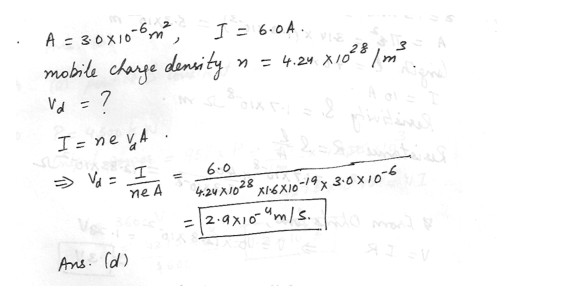 . A = 3.0×10⁻⁶m², I = 6.0A.
mobile charge density n = 4.24 ×10²⁸/m³.
Vd = ?
I = neVdA.
⇒ Vd = I/neA = 6.0/4.24×10²⁸×1.6×10⁻¹⁹×3.0×10⁻⁶
= 2.9×10⁻⁴m/s.
Ans. (d)